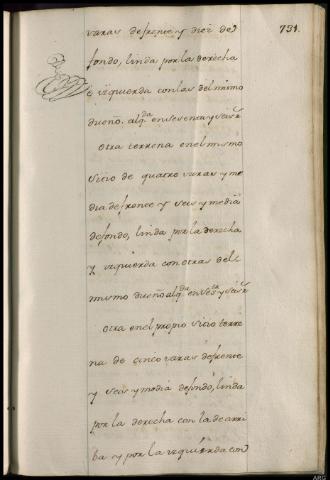 731.
varas defrente y diez de
fondo, linda por la derecha
e izquierda con las del mismo
dueño. alqda en sesenta y seis rs
Otra terrena en el mismo
sitio de quatro varas y me
dia defrente y seis y media
defondo, linda por la derecha
y izquierda con otras del
mismo dueño alqda en
Otra en el propio sitio terre
na de cinco varas defrente
y seis y media defondo, linda
por la derecha con la de arri
ba y por la izquierda con